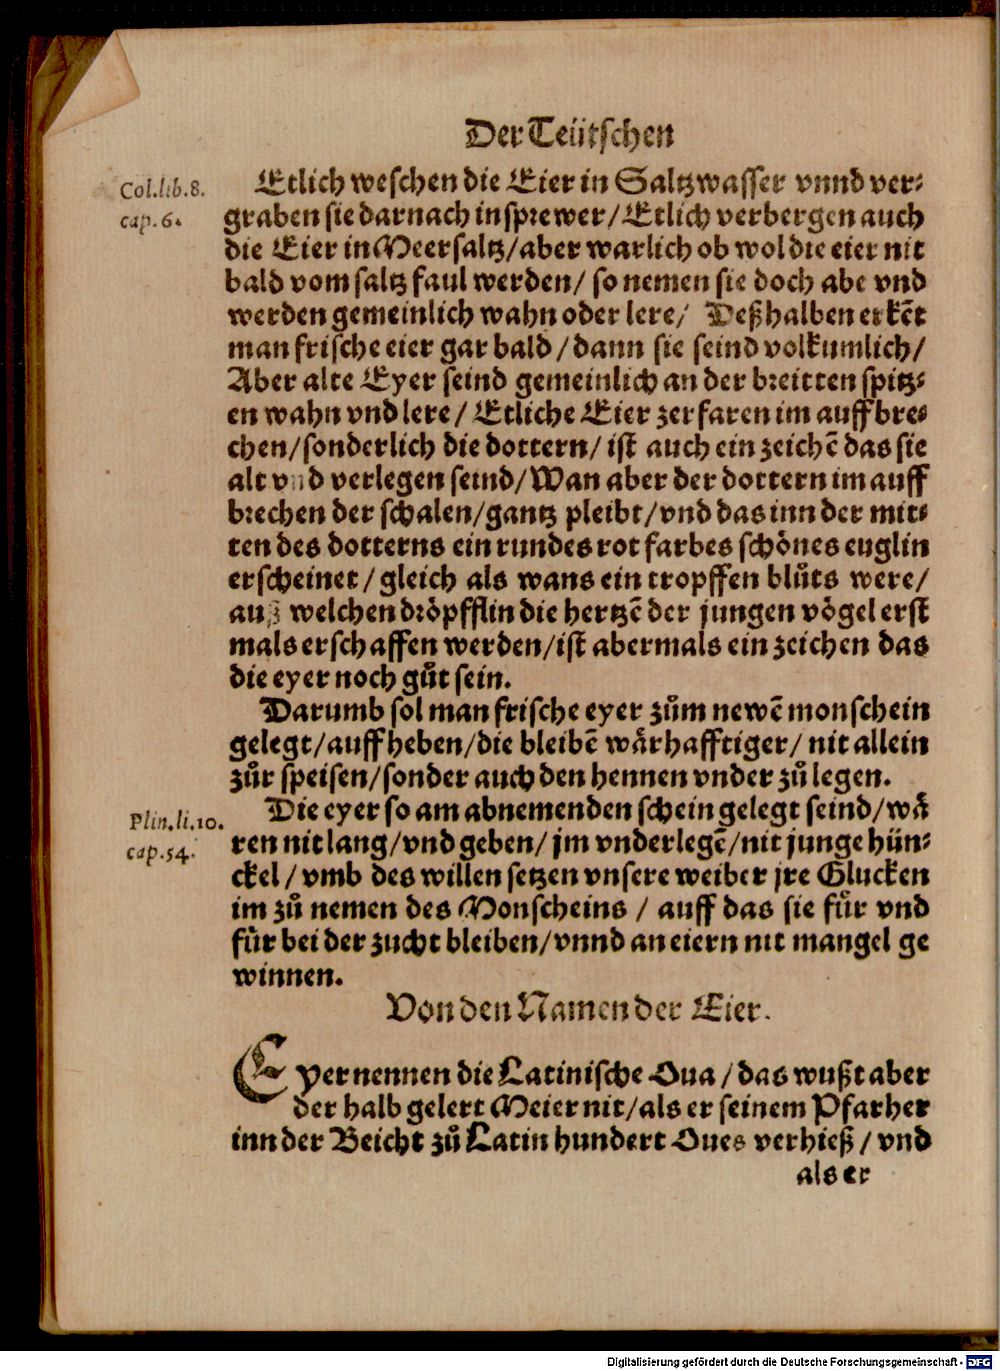 Der Teütschen
Col. lib. 8.
cap. 6.
Etlich weschen die Eier in Saltzwasser vnnd ver-
graben sie darnach in sprewer/ Etlich verbergen auch
die Eier in Meersaltz/ aber warlich ob wol die eier nit
bald vom saltz faul werden/ so nemen sie doch abe vnd
werden gemeinlich wahn oder lere/ Deßhalben erkẽt
man frische eier gar bald/ dann sie seind volkumlich/
Aber alte Eyer seind gemeinlich an der breitten spitz-
en wahn vnd lere/ Etliche Eier zerfaren im auffbre-
chen/ sonderlich die dottern/ ist auch ein zeichẽ das sie
alt vnd verlegen seind/ Wan aber der dottern im auff
brechen der schalen/ gantz pleibt/ vnd das inn der mit-
ten des dotterns ein rundes rot farbes schönes euglin
erscheinet/ gleich als wans ein tropffen blůts were/
auß welchen dröpfflin die hertzẽ der jungen vögel erst
mals erschaffen werden/ ist abermals ein zeichen das
die eyer noch gůt sein.
Darumb sol man frische eyer zům newẽ monschein
gelegt/ auffheben/ die bleibẽ wärhafftiger/ nit allein
zůr speisen/ sonder auch den hennen vnder zů legen.
Plin. li. 10.
cap. 54.
Die eyer so am abnemenden schein gelegt seind/ wä
ren nit lang/ vnd geben/ jm vnderlegẽ/ nit junge hün-
ckel/ vmb des willen setzen vnsere weiber jre Glucken
im zů nemen des Monscheins/ auff das sie für vnd
für bei der zucht bleiben/ vnnd an eiern nit mangel ge
winnen.
Von den Namen der Eier.
Eyer nennen die Latinische Oua/ das wußt aber
der halb gelert Meier nit/ als er seinem Pfarher
inn der Beicht zů Latin hundert Oues verhieß/ vnd
als er
Digitalisierung gefördert durch die Deutsche Forschungsgemeinschaft - DFG